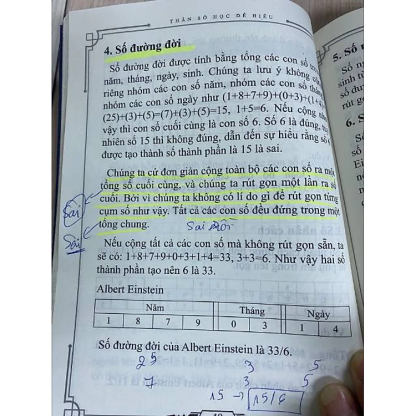 THẦN SỐ HỌC DỄ HIỂU
4. Số đường đời
Số đường đời được tính bằng tổng các con số
năm, tháng, ngày, sinh. Chúng ta lưu ý không
riêng nhóm các con số năm, nhóm các con số
nhóm các con số ngày như (1+8+7+9)+(0+3)+(1+
(25)+(3)+(5)=(7)+(3)+(5)=15, 1+5=6. Nếu cộng
vậy thì con số cuối cùng là con số 6. Số 6 là đúng,
nhiên số 15 thì không đúng, dẫn đến sự hiểu rằng số
được tạo thành số thành phần là 15 là sai.
Chúng ta cứ đơn giản cộng toàn bộ các con số ra
tổng số cuối cùng, và chúng ta rút gọn một lần ra số
cuối. Bởi vì chúng ta không có lí do gì để rút gọn từng
cụm số như vậy. Tất cả các con số đều đứng trong một
tổng chung.
Sai
Sai
Nếu cộng tất cả các con số mà không rút gọn sẵn, ta
sẽ có: 1+8+7+9+0+3+1+4=33, 3+3=6. Như vậy hai số
thành phần tạo nên 6 là 33.
Albert Einstein
Năm Tháng Ngày
1 8 7 9 0 3 1 4
Số đường đời của Albert Einstein là 33/6.
25 3 5
7 3 5
15 → 15/6
5. Số
Số
6. S